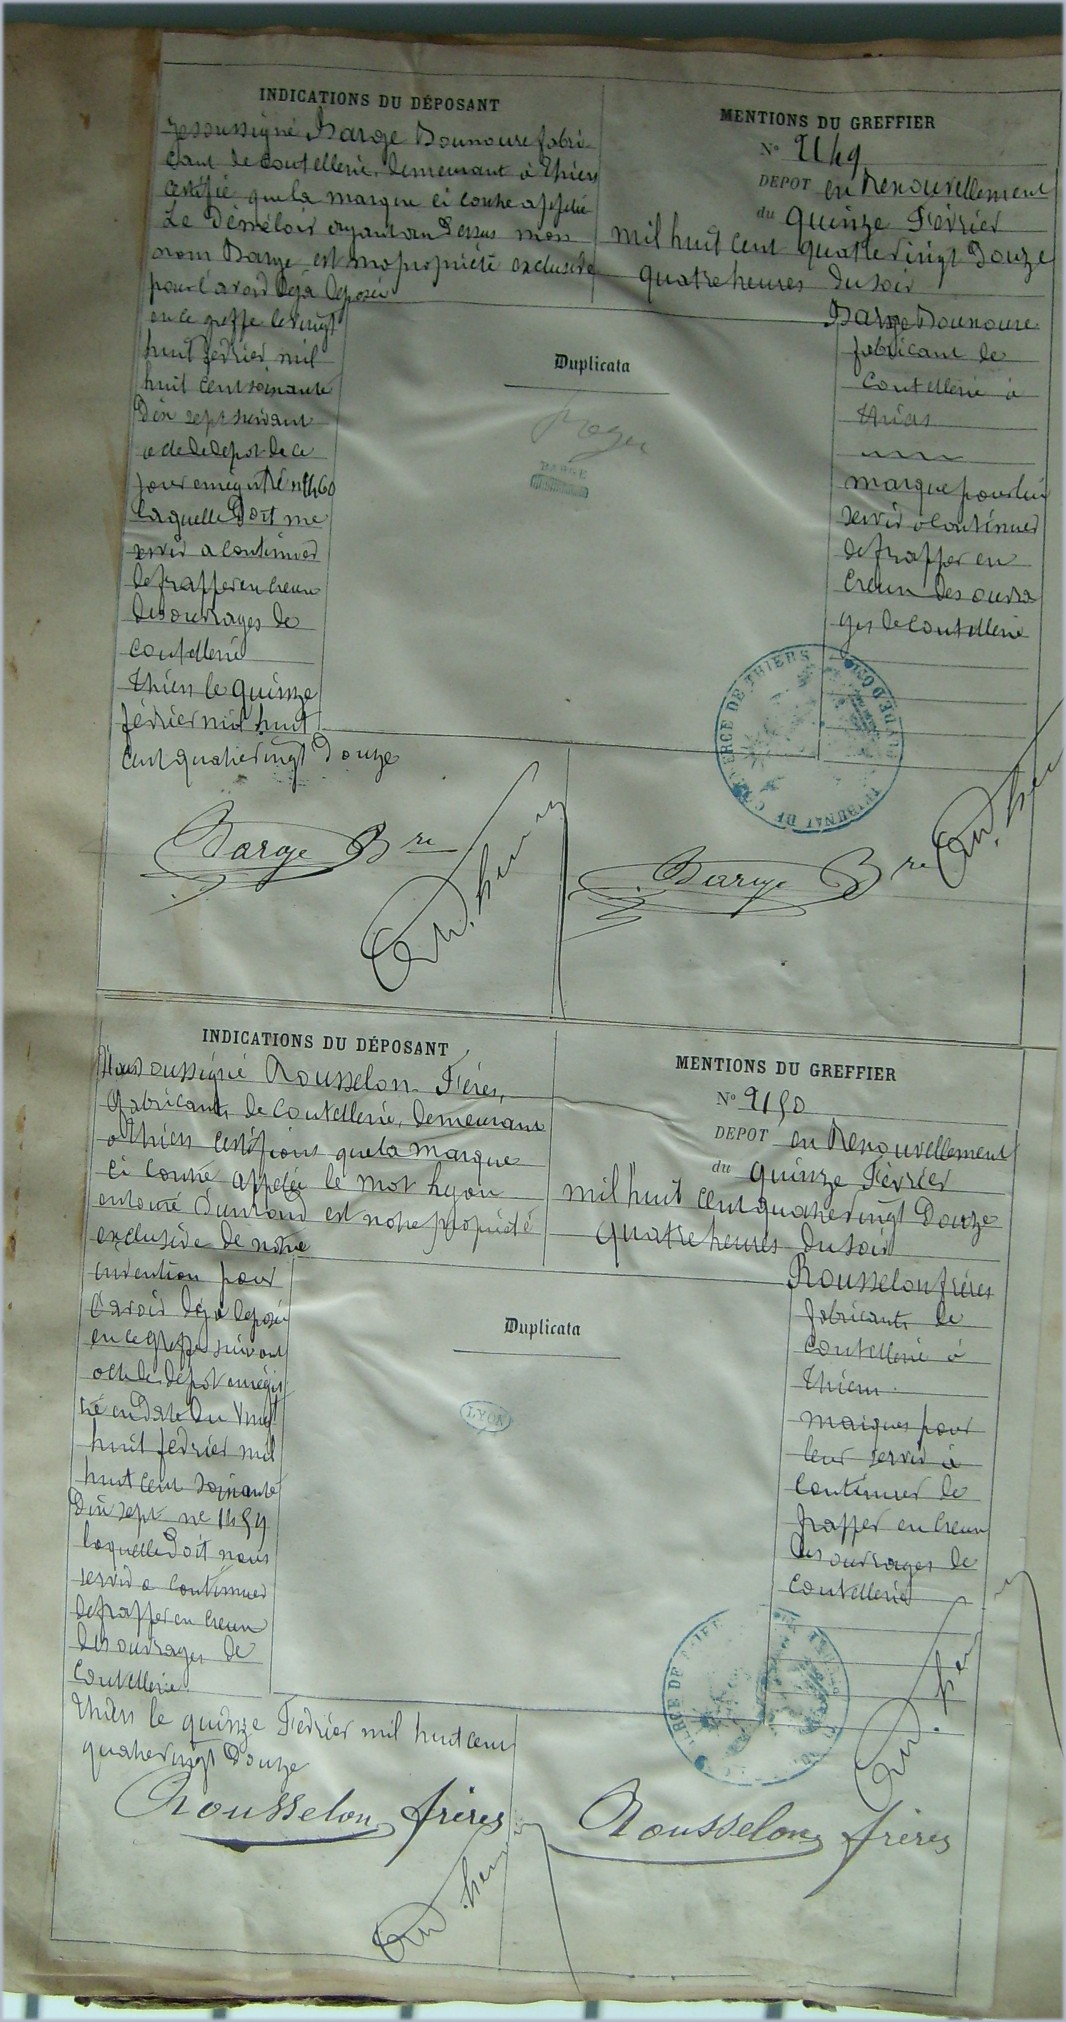 INDICATIONS DU DÉPOSANT
Je soussigné Barge Dounoure fabri
cant de coutellerie, demeurant à Thiers
certifie que la marque ci contre appelée
Le Démêloir ayant au dessus mon
nom Barge est ma propriété exclusive
pour l'avoir déjà déposée
en ce greffe le vingt
huit février mil
huit cent soixante
dix sept suivant
acte de dépôt de ce
jour enregistré n° 1460
laquelle doit me
servir a continuer
de frapper en creux
des ouvrages de
coutellerie
Thiers le quinze
février mil huit
cent quatre vingt douze
Barge Bre
MENTIONS DU GREFFIER
N° 2149
DEPOT en Renouvellement
du quinze Février
mil huit cent quatre vingt Douze
quatre heures du soir
Barge Dounoure
fabricant de
Coutellerie à
Thiers
marque pour lui
servir à continuer
de frapper en
creux des ouvra
ges de coutellerie
Duplicata
BARGE
TRIBUNAL DE COMMERCE DE THIERS
PUY DE DOME
Barge Bre
INDICATIONS DU DÉPOSANT
Nous soussigné Rousselon Frères,
fabricants de Coutellerie, demeurant
à Thiers certifions que la marque
ci contre appelée le mot Lyon
entouré d'un rond est notre propriété
exclusive de notre
invention pour
l'avoir déjà déposée
en ce greffe suivant
acte de dépôt enregis
tré en date du vingt
huit février mil
huit cent soixante
dix sept n° 1459
laquelle doit nous
servir a continuer
de frapper en creux
des ouvrages de
Coutellerie.
Thiers le quinze Février mil huit cent
quatre vingt Douze
Rousselon frères
MENTIONS DU GREFFIER
N° 2150
DEPOT en Renouvellement
du quinze Février
mil huit cent quatre vingt Douze
quatre heures du soir
Rousselon frères
fabricants de
coutellerie à
Thiers.
marques pour
leur servir à
continuer de
frapper en creux
des ouvrages de
coutellerie
Duplicata
LYON
Rousselon frères